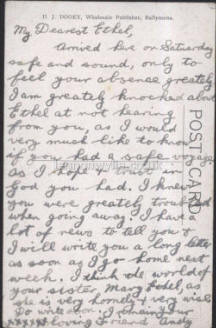 H. J. DOOEY, Wholesale Publisher, Ballymena.
My Dearest Ethel,
Arrived here on Saturday
safe and sound, only to
feel your absence greatly
I am greately knocked about
Ethel at not hearing
from you, as I would
very much like to know
if you had a safe voyage
as I hope & trust in
God you had. I knew
you were greatly troubled
when going away. I have a
lot of news to tell you &
I will write you a long letter
as soon as I go home next
week. I think the world of
your sister Mary Ethel, as
she is very homely & very wise
Do write soon. I remain your
loving friend Andy
POST CARD